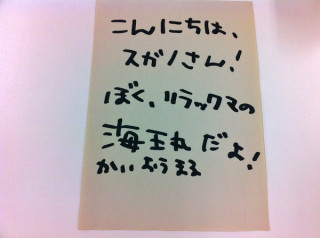 こんにちは、
スガノさん!
ぼく、リラックマの
海王丸だよ!
かいおうまる